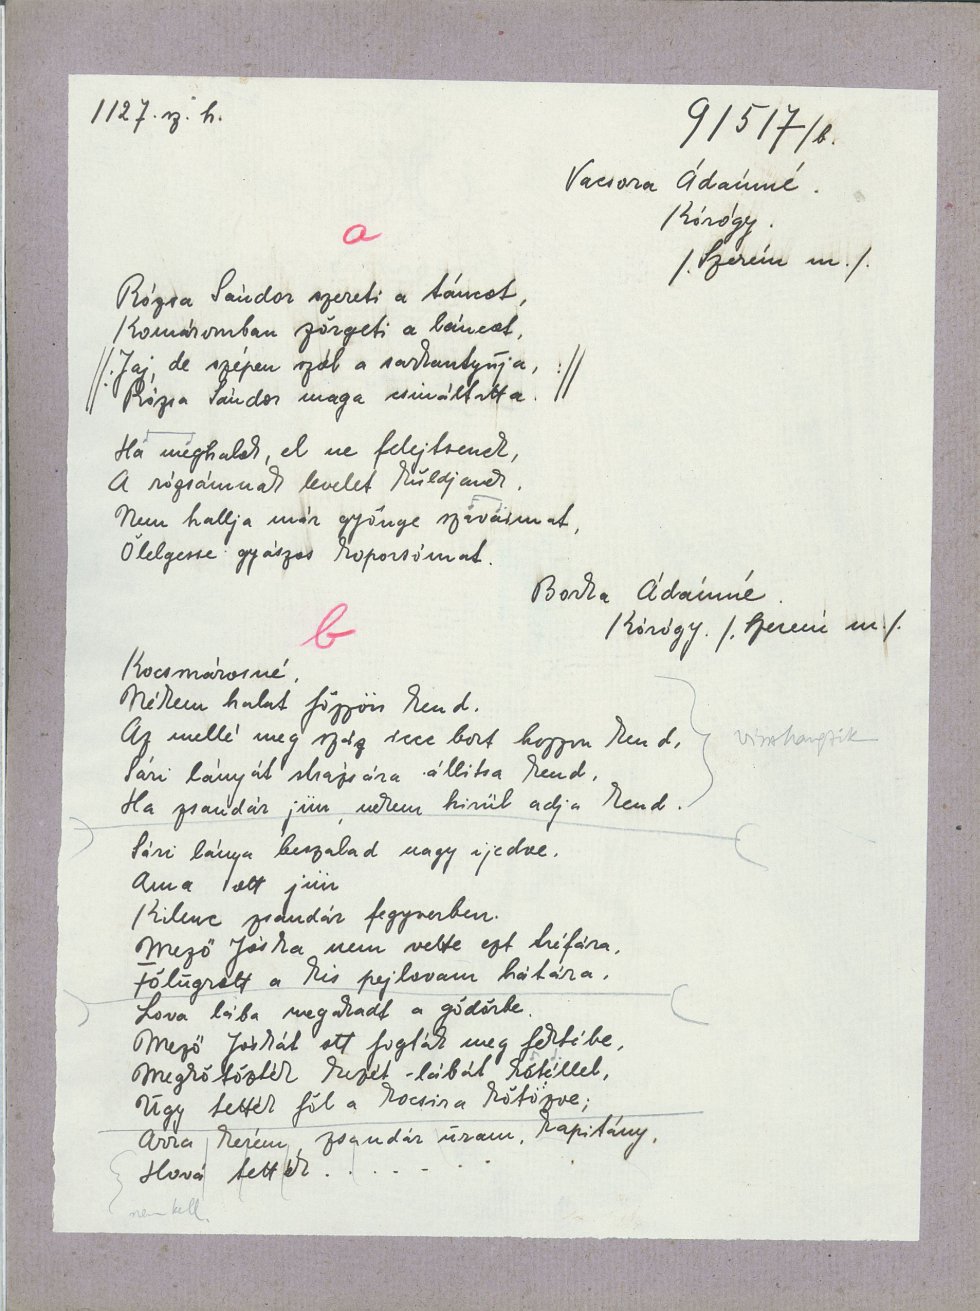 1127. sz. h.
91517/b.
Vacsora Ádámné.
Kórógy.
/. Szerém m./.
a
Rózsa Sándor szereti a táncot,
Komáromban zörgeti a láncot,
//:Jaj, de szépen szól a sarkantyúja, ://
Rózsa Sándor maga csináltatta.
Há méghalok, el ne felejtsenek,
A rózsámnak levelet küldjenek.
Nem hallja már gyönge szávaimat,
Ölelgesse gyászos koporsómat.
Borka Ádámné.
Kórógy. /. Szerém m./.
b
Kocsmárosné,
Nékem halat főzzön kend.
Az mellé meg száz icce bort hozzon kend,
Sári lányát strázsára állítsa kend,
Ha zsandár jün, nekem hírül adja kend.
visszhangzik
Sári lánya beszalad nagy ijedve.
Ama ott jün
Kilenc zsandár fegyverben.
Mező Jóska nem vette ezt tréfára,
Fölugrott a kis pejlovam hátára.
Lova lába megakadt a gödörbe.
Mező Jóskát ott fogták meg fektébe,
Megkötözték kezét-lábát kötéllel,
Úgy tették föl a kocsira kötözve;
Arra kérém, zsandár uram, kapitány,
Hová tették . . . . - . .
nem kell.